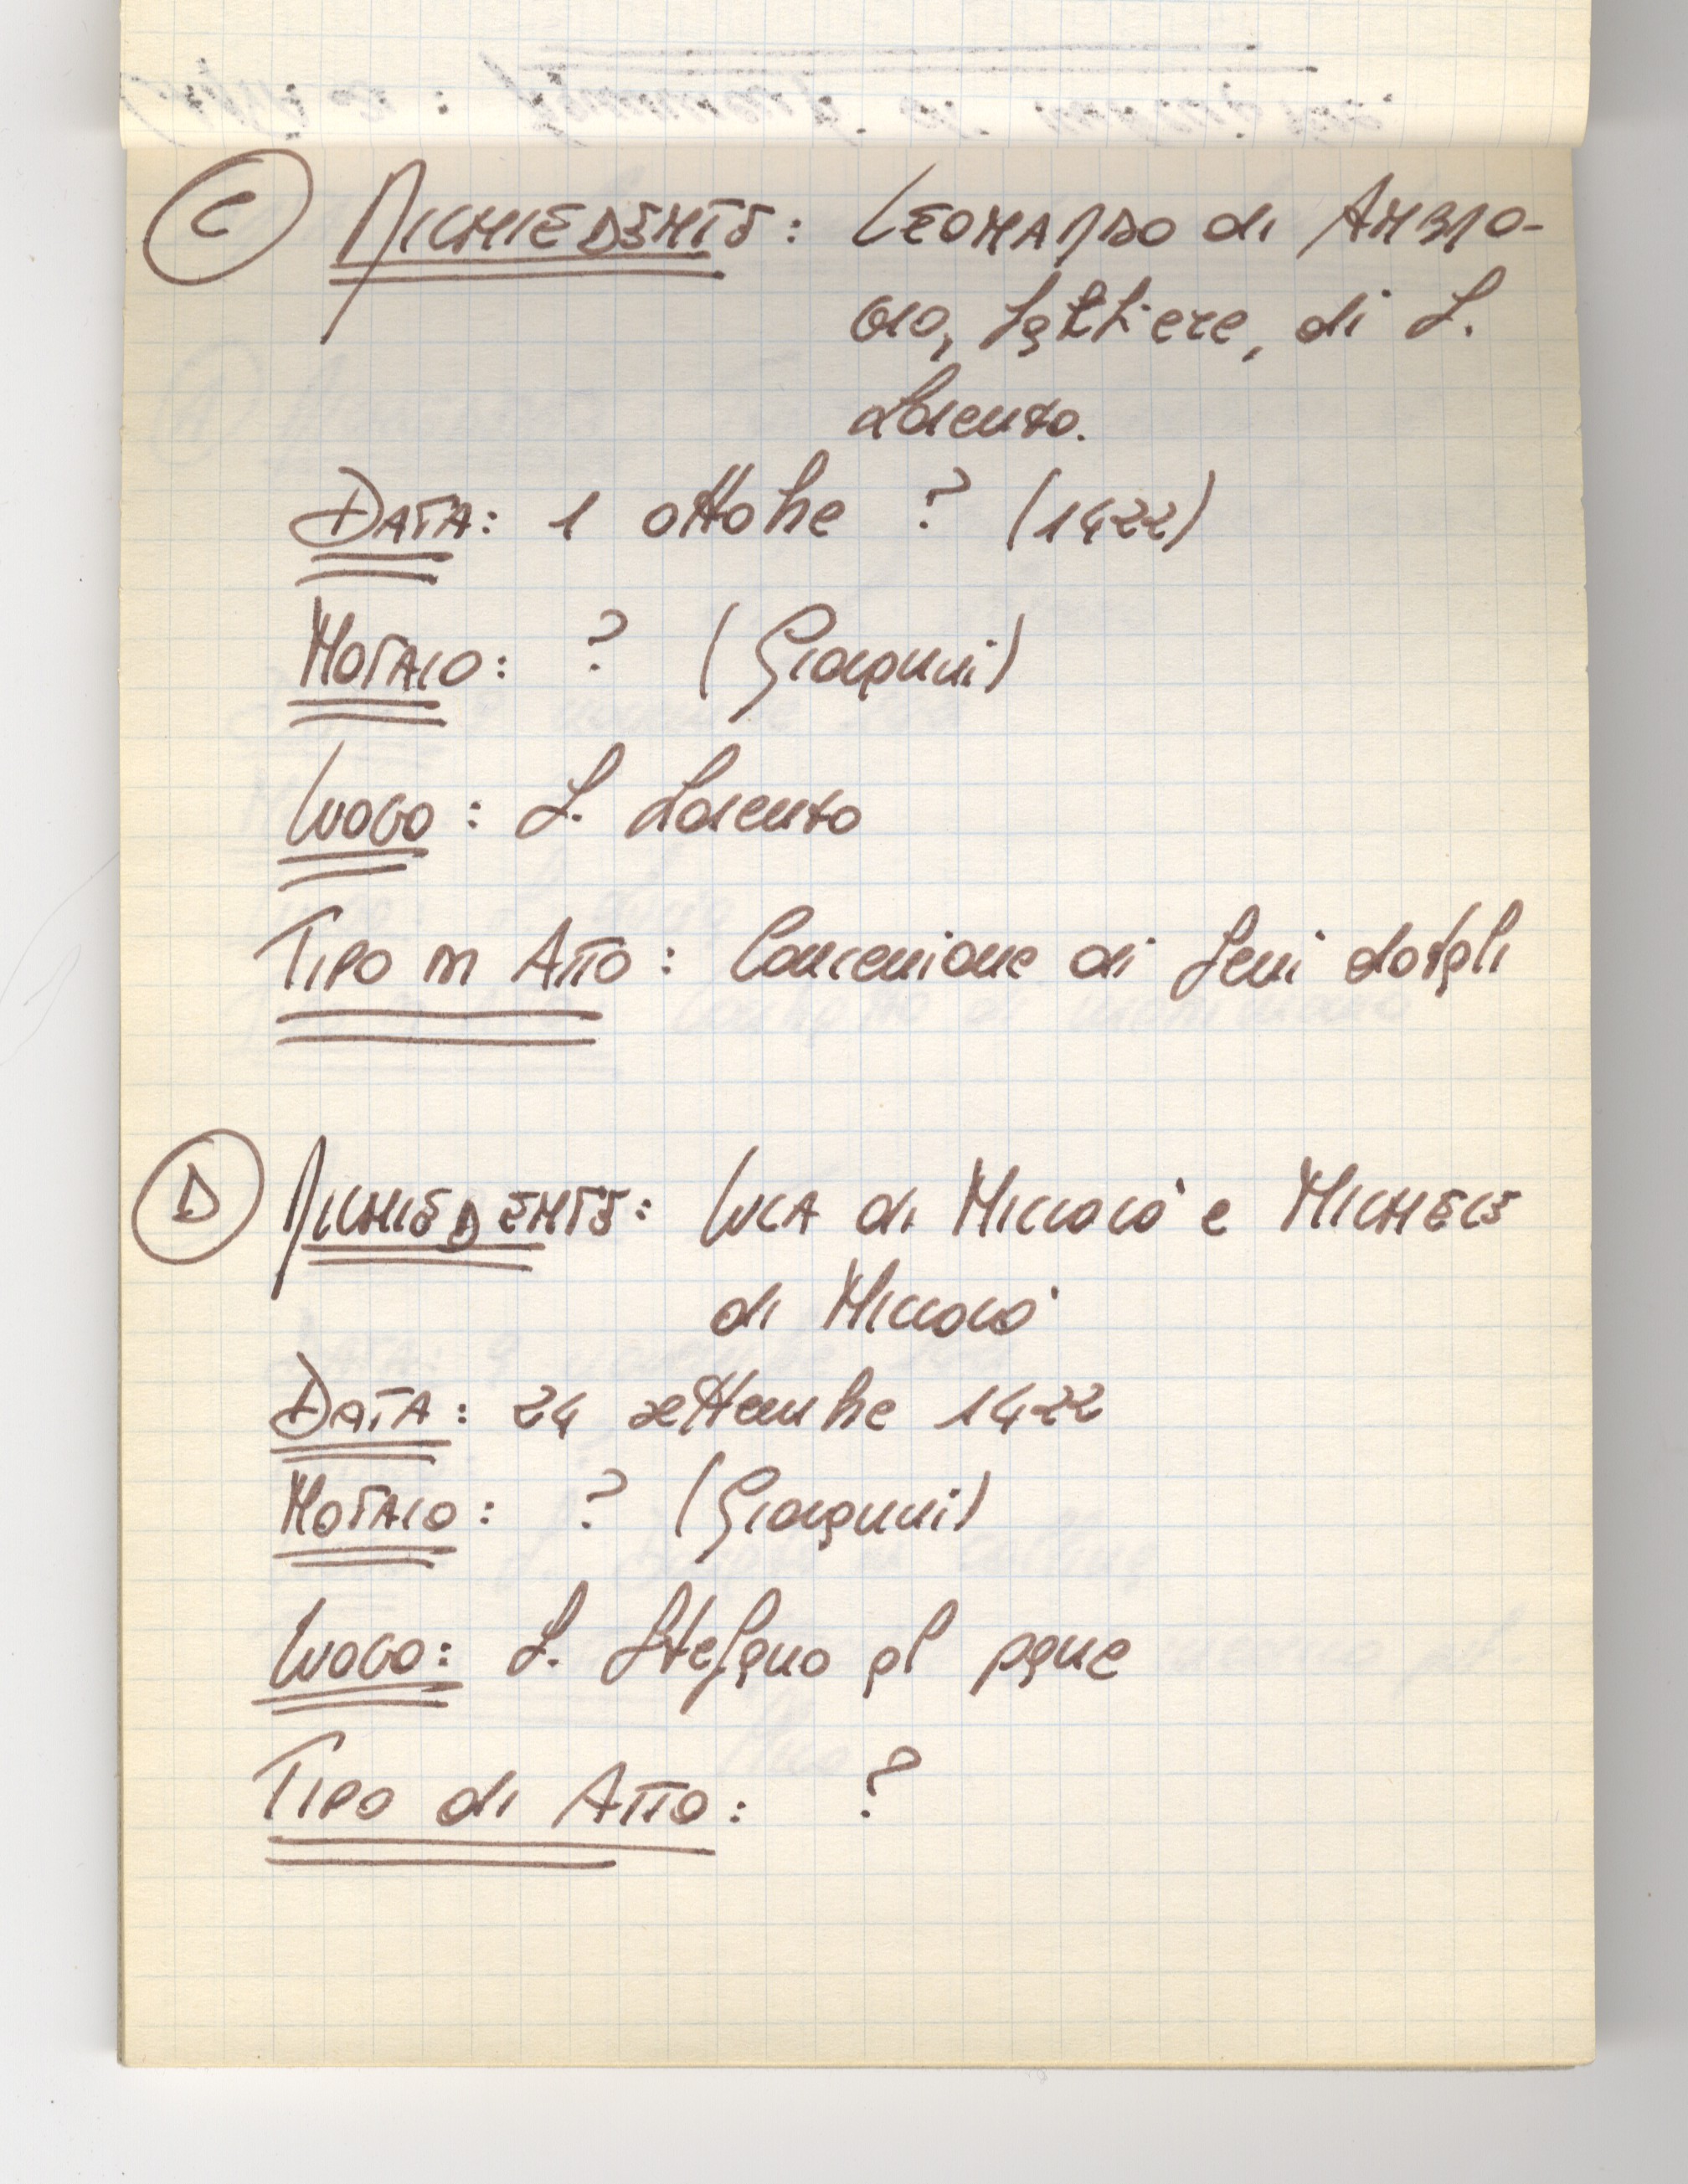 C RICHIEDENTE: LEONARDO di AMBRO-
GIO, battiere, di S.
Lorenzo.
DATA: 1 ottobre ? (1422)
NOTAIO: ? (Giovanni)
LUOGO: S. Lorenzo
TIPO DI ATTO: Concessione di beni dotali
D RICHIEDENTE: LUCA di NICCOLÒ e MICHELE
di NICCOLÒ
DATA: 24 settembre 1422
NOTAIO: ? (Giovanni)
LUOGO: S. Stefano al pane
TIPO di ATTO: ?